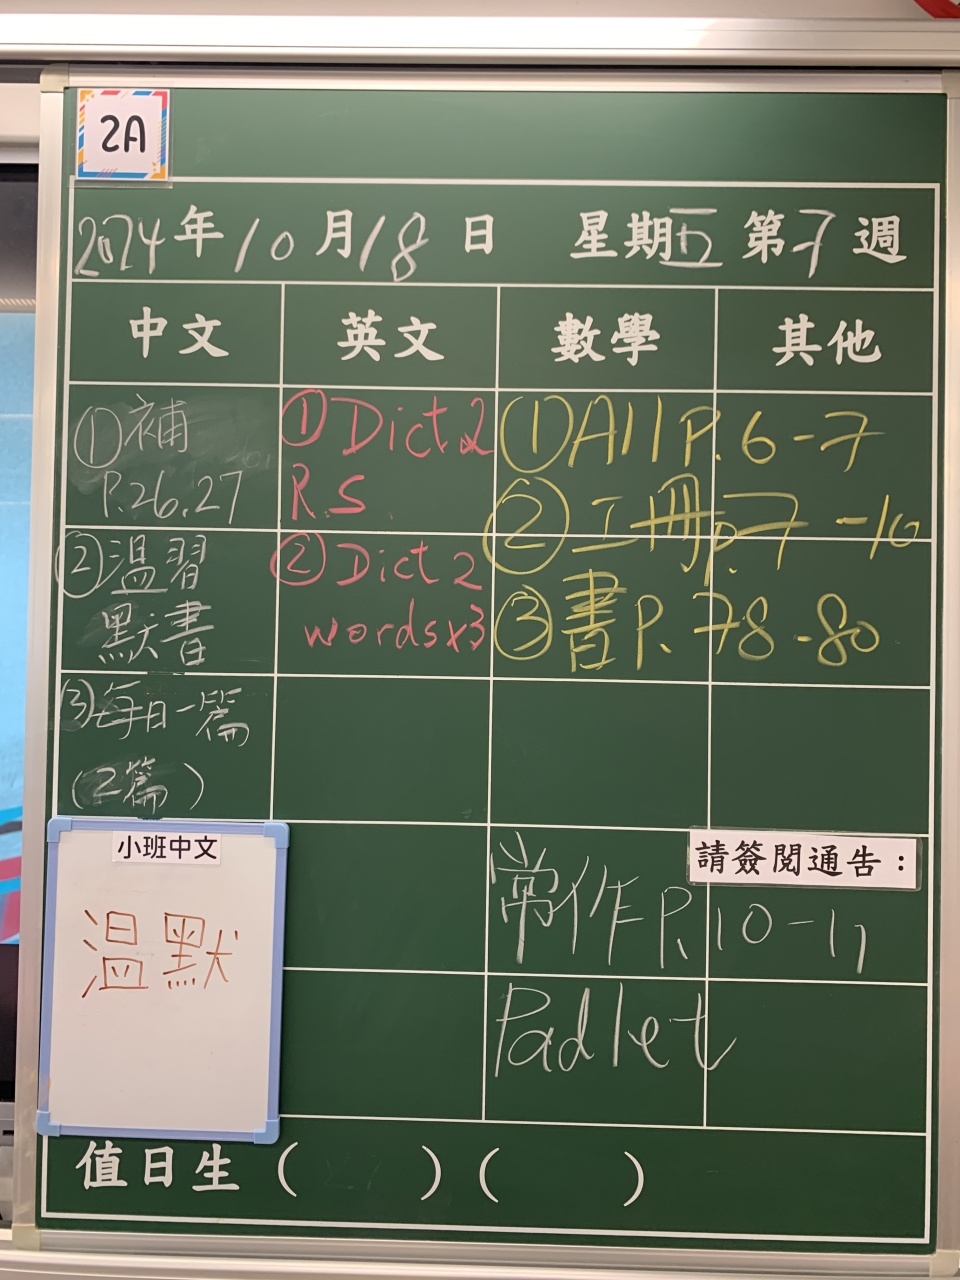 2A
2024年10月18日 星期五 第7週
中文 英文 數學 其他
①補
P.26.27
②溫習
默書
③每日一篇
(2篇)
①Dict.2
R.S
②Dict 2
wordsx3
①A11 P.6-7
②工冊p.7-10
③書P.78-80
小班中文
溫默
請簽閱通告：
常作P.10-11
Padlet
值日生（ ）（ ）